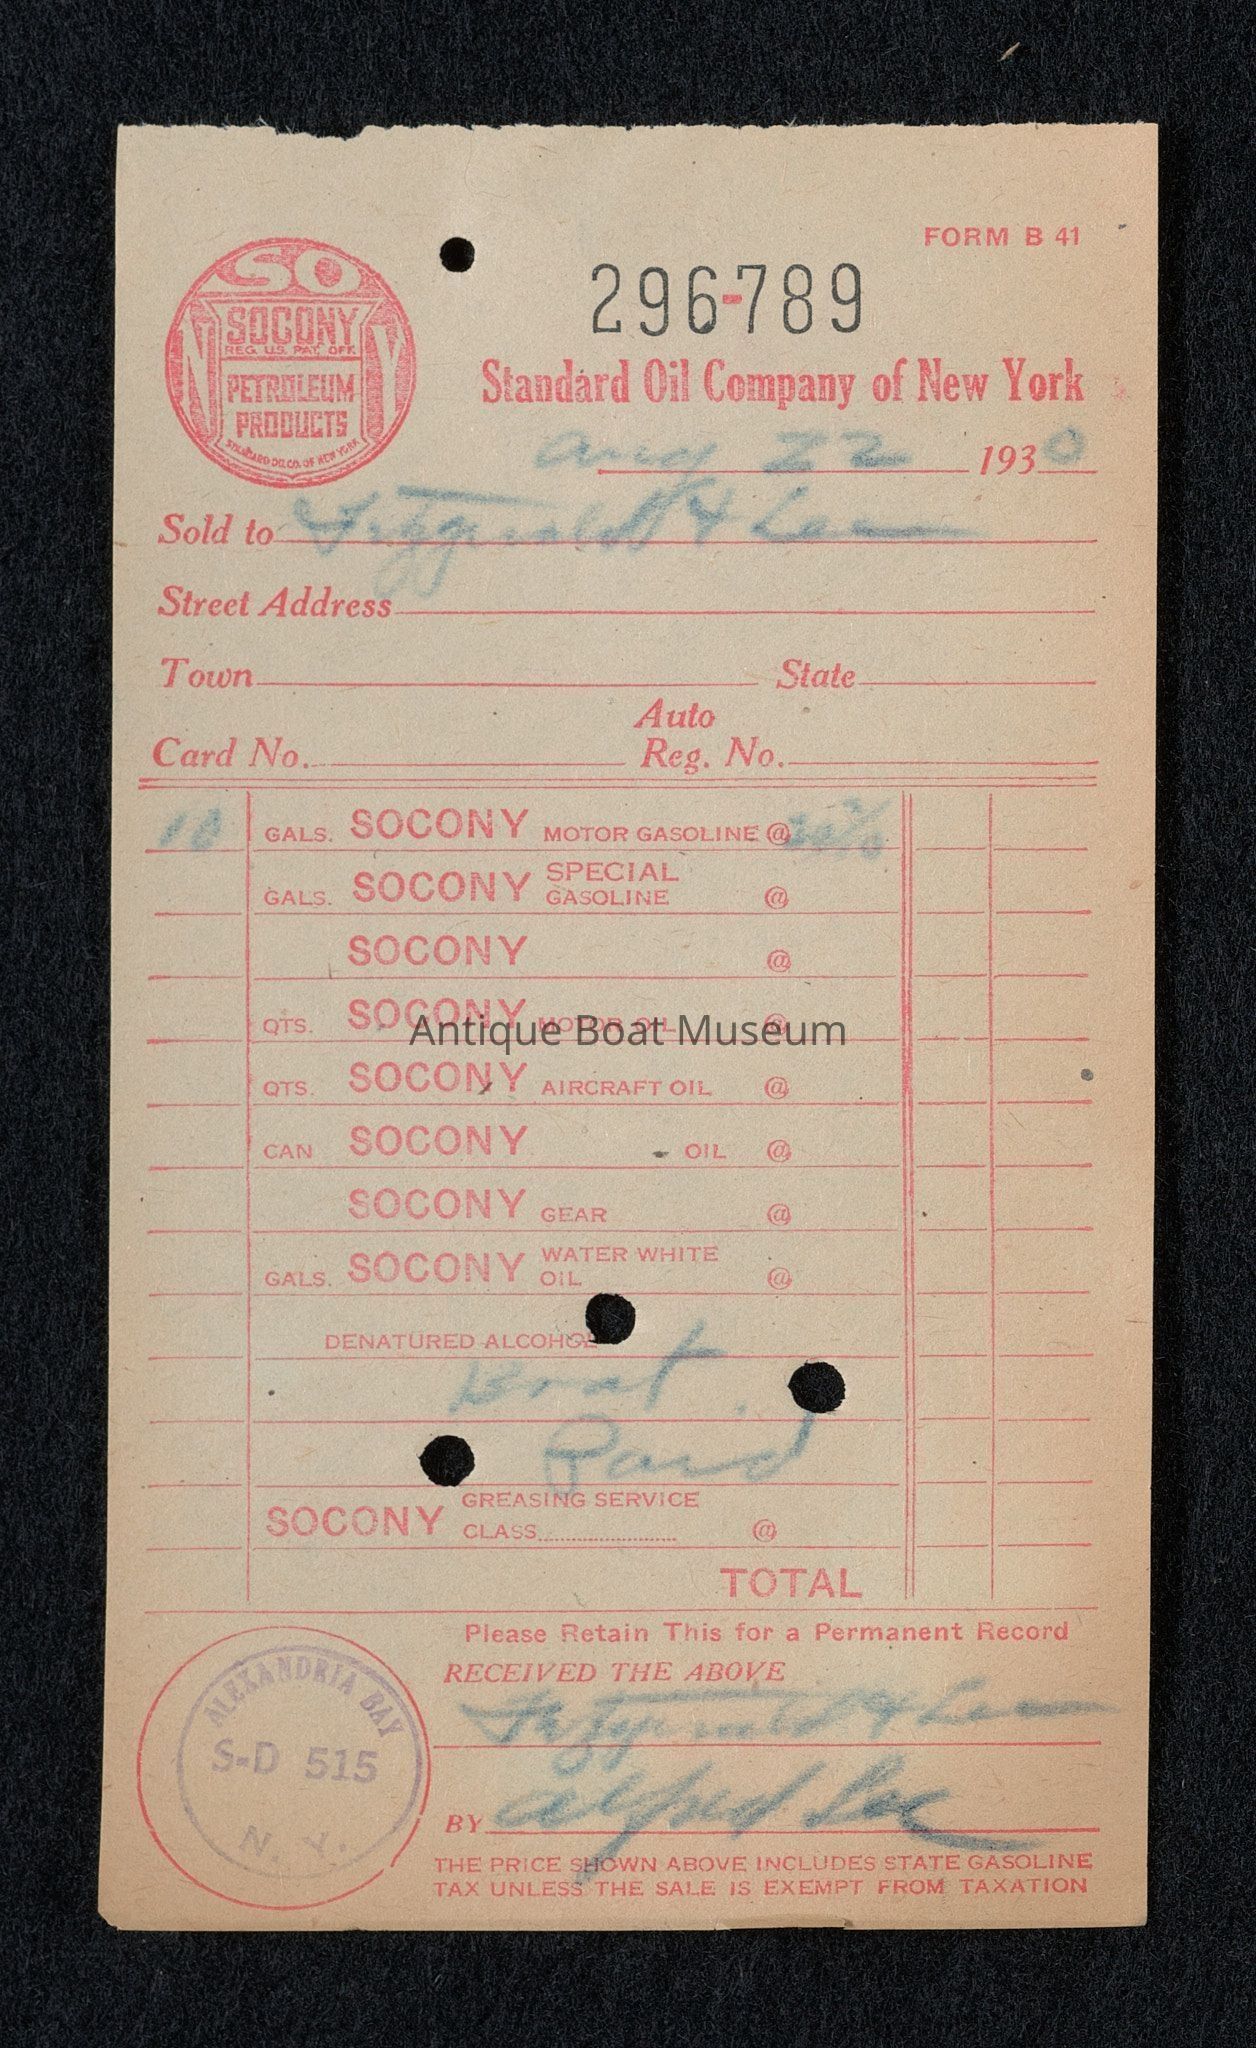 FORM B 41
SO
NY
SOCONY
REG. U.S. PAT. OFF.
PETROLEUM
PRODUCTS
STANDARD OIL CO. OF NEW YORK
296-789
Standard Oil Company of New York
Aug 22 1930
Sold to Fitzgerald & Lee
Street Address
Town State
Auto
Card No. Reg. No.
10 GALS. SOCONY MOTOR GASOLINE @
GALS. SOCONY SPECIAL GASOLINE @
SOCONY @
QTS. SOCONY MOTOR OIL @
Antique Boat Museum
QTS. SOCONY AIRCRAFT OIL @
CAN SOCONY OIL @
SOCONY GEAR @
GALS. SOCONY WATER WHITE OIL @
DENATURED ALCOHOL
Boat
Paid
SOCONY GREASING SERVICE CLASS @
TOTAL
Please Retain This for a Permanent Record
RECEIVED THE ABOVE
Fitzgerald & Lee
BY Alfred Lee
ALEXANDRIA BAY
S-D 515
N. Y.
THE PRICE SHOWN ABOVE INCLUDES STATE GASOLINE
TAX UNLESS THE SALE IS EXEMPT FROM TAXATION